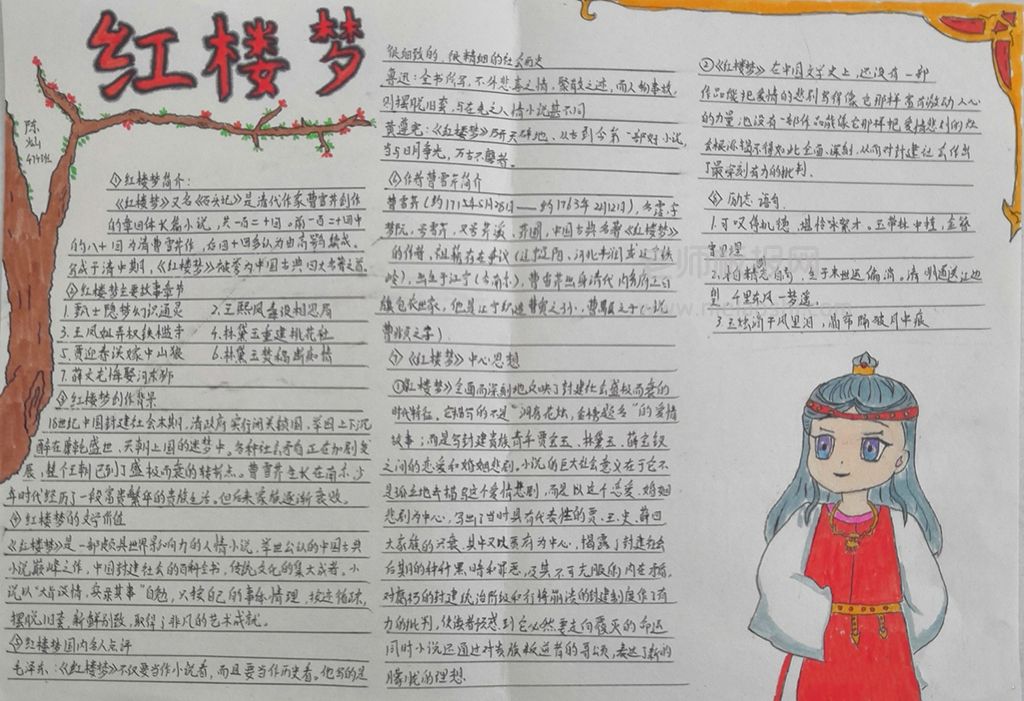 红楼梦
陈
灿
414班
①红楼梦简介:
《红楼梦》又名《石头记》是清代作家曹雪芹创作
的章回体长篇小说,共一百二十回。前一百二十回中
的八十回为清曹雪芹作,后四十回多认为由高鹗续成。
写成于清中期,《红楼梦》被誉为中国古典四大名著之首。
②红楼梦主要故事章节
1.甄士隐梦幻识通灵 2.王熙凤毒设相思局
3.王凤姐弄权铁槛寺 4.林黛玉重建桃花社
5.贾迎春误嫁中山狼 6.林黛玉焚稿断痴情
7.薛文龙悔娶河东狮
③红楼梦创作背景
18世纪中国封建社会末期,清政府实行闭关锁国,举国上下沉
醉在康乾盛世、天朝上国的迷梦中。各种社会矛盾正在加剧发
展,整个王朝已到了盛极而衰的转折点。曹雪芹生长在南京,少
年时代经历了一段富贵繁华的贵族生活。但后来家族逐渐衰败。
④红楼梦的文学价值
《红楼梦》是一部具世界影响力的人情小说,举世公认的中国古典
小说巅峰之作,中国封建社会的百科全书,传统文化的集大成者。小
说以“大旨谈情,实录其事”自勉,只按自己的事体情理,按迹循踪,
摆脱旧套,新鲜别致,取得了非凡的艺术成就。
⑤红楼梦国内名人点评
毛泽东:《红楼梦》不仅要当作小说看,而且要当作历史看。他写的是
很细致的,很精细的社会历史
鲁迅:全书所写,不外悲喜之情,聚散之迹,而人物事故,
则摆脱旧套,与在先之人情小说甚不同
黄遵宪:《红楼梦》乃开天辟地、从古到今第一部好小说,
当与日月争光,万古不磨者。
⑥作者曹雪芹简介
曹雪芹(约1715年5月28日——约1763年2月12日),名霑,字
梦阮,号雪芹,又号芹溪、芹圃,中国古典名著《红楼梦》
的作者,祖籍存在争议(辽宁辽阳、河北丰润或辽宁铁
岭),出生于江宁(今南京),曹雪芹出身清代内务府正白
旗包衣世家,他是江宁织造曹寅之孙,曹颙之子(一说
曹頫之子)。
⑦《红楼梦》中心思想
①《红楼梦》全面而深刻地反映了封建社会盛极而衰的
时代特征。它描写的不是“洞房花烛,金榜题名”的爱情
故事;而是写封建贵族青年贾宝玉、林黛玉、薛宝钗
之间的恋爱和婚姻悲剧。小说的巨大社会意义在于它不
是孤立地去描写这个爱情悲剧,而是以这个恋爱、婚姻
悲剧为中心,写出了当时具有代表性的贾、王、史、薛四
大家族的兴衰,其中又以贾府为中心,揭露了封建社会
后期的种种黑暗和罪恶,及其不可克服的内在矛盾,
对腐朽的封建统治阶级和行将崩溃的封建制度作了有
力的批判,使读者预感到它必然要走向覆灭的命运
同时小说还通过对贵族叛逆者的歌颂,表达了新的
朦胧的理想.
②《红楼梦》在中国文学史上,还没有一部
作品能把爱情的悲剧写得像它那样富有激动人心
的力量;也没有一部作品能像它那样把爱情悲剧的社
会根源揭示得如此全面、深刻,从而对封建社会作出
了最深刻有力的批判。
⑧励志语句
1.可叹停机德,堪怜咏絮才。玉带林中挂,金簪
雪里埋
2.才自精明志自高,生于末世运偏消。清明涕送江边
望,千里东风一梦遥。